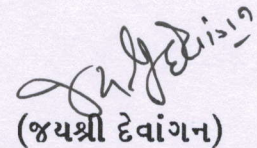 (જયશ્રી દેવાંગન)